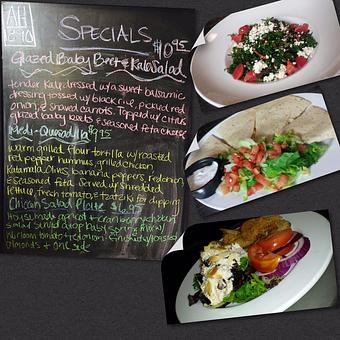 AH
SPECIALS
$10.95
Glazed Baby Beet & Kale Salad
tender Kale dressed w/a sweet balsamic
dressing tossed w/ black rice, pickled red
onion, & shaved carrots. Topped w/ citrus
glazed baby beets & seasoned feta cheese
Medi-Quesadilla $9.95
warm grilled flour tortilla w/ roasted
red pepper hummus, grilled chicken
Kalamata Olives, banana peppers, red onion,
& seasoned feta. Served w/ shredded
lettuce, fresh tomato, & tzatziki for dipping
Chicken Salad Plate $6.95
House made apricot & cranberry chicken
salad served atop baby spring mix w/
heirloom tomato & red onion. Finished w/ toasted
almonds & one side